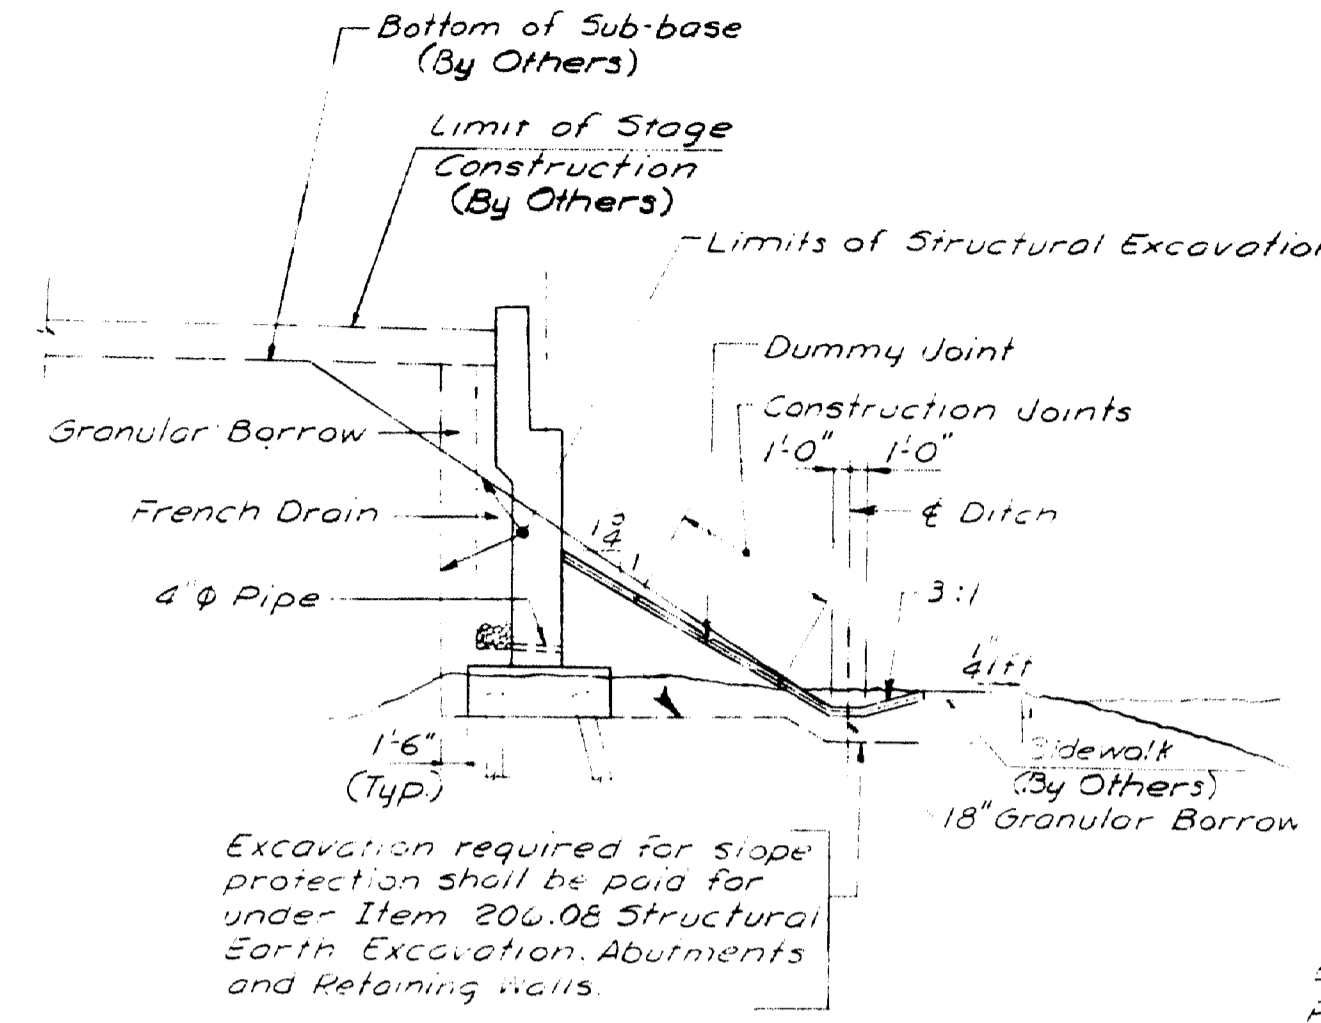 Bottom of Sub-base
(By Others)
Limit of Stage
Construction
(By Others)
Limits of Structural Excavation
Dummy Joint
Construction Joints
1'-0" 1'-0"
Granular Borrow
French Drain
¢ Ditch
4"Φ Pipe
1
3:1
1/4"/ft
1'-6"
(Typ.)
Sidewalk
(By Others)
18" Granular Borrow
Excavation required for slope
protection shall be paid for
under Item 206.08 Structural
Earth Excavation. Abutments
and Retaining Walls.